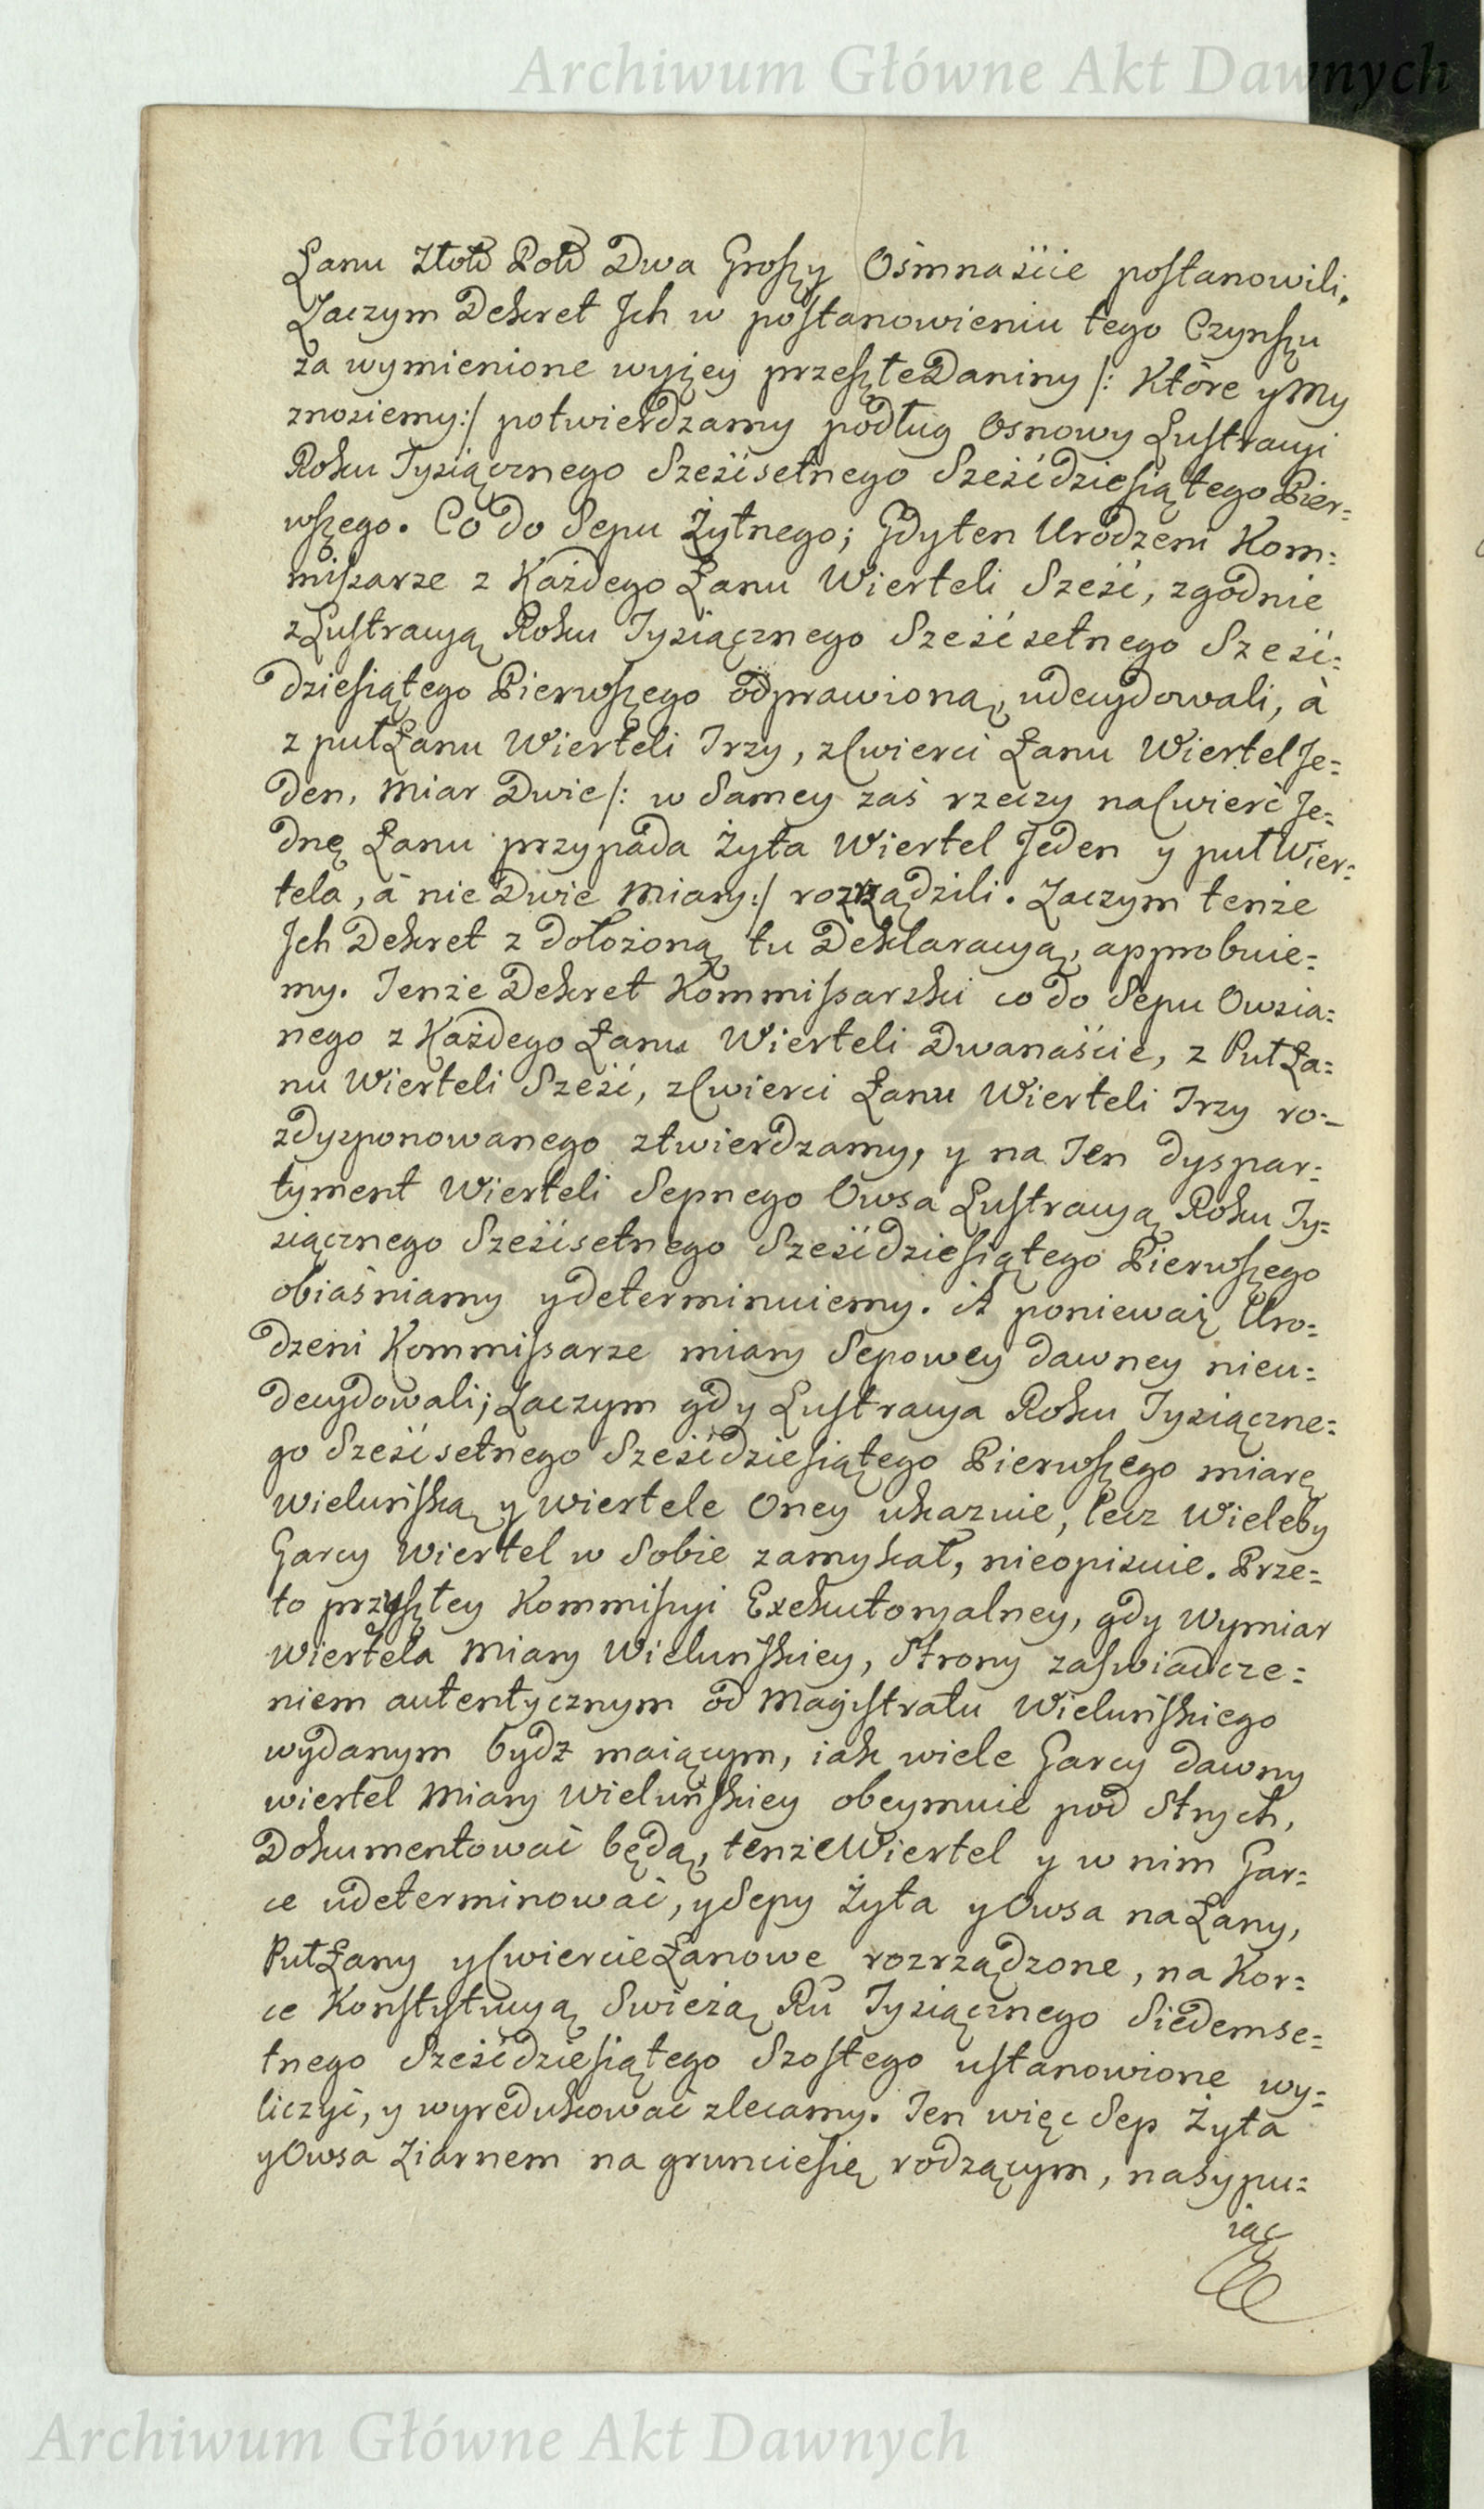 Archiwum Główne Akt Dawnych
Łanu Złotᵈ Polᵈ Dwa Groszy Ośmnaście postanowili,
Zaczym Dekret Jch w postanowieniu tego Czynszu
za wymienione wyżey przeszłe Daniny /: Które y My
znosiemy :/ potwierdzamy podług Osnowy Lustracyi
Roku Tysiącznego Sześćsetnego Sześćdziesiątego Pier=
wszego. Co do Sepu Żytnego; Gdy ten Urodzeni Kom=
missarze z Każdego Łanu Wierteli Sześć, zgodnie
z Lustracyą Roku Tysiącznego Sześćsetnego Sześć=
dziesiątego Pierwszego odprawioną, udecydowali, à
z puł Łanu Wierteli Trzy, z Cwierci Łanu Wiertel Je=
den, Miar Dwie /: w Samey zaś rzeczy na Cwierć Je=
dnę Łanu przypada Żyta Wiertel Jeden y puł Wier=
tela, à nie Dwie Miary :/ rozrządzili. Zaczym tenże
Jch Dekret z dołożoną tu Deklaracyą, approbuie=
my. Tenże Dekret Kommissarski co do Sepu Owsia=
nego z Każdego Łanu Wierteli Dwanaście, z Puł Ła=
nu Wierteli Sześć, z Cwierci Łanu Wierteli Trzy ro=
zdysponowanego ztwierdzamy, y na Ten dyspar=
tyment Wierteli Sepnego Owsa Lustracyą Roku Ty=
siącznego Sześćsetnego Sześćdziesiątego Pierwszego
obiaśniamy y determinuiemy. A ponieważ Uro=
dzeni Kommissarze miary Sepowey dawney nieu=
decydowali; Zaczym gdy Lustracya Roku Tysiączne=
go Sześćsetnego Sześćdziesiątego Pierwszego miarę
Wieluńską y wiertele Oney ukazuie, lecz Wieleby
Garcy Wiertel w Sobie zamykał, nieopisuie. Prze=
to przyszłey Kommissyi Exekutoryalney, gdy Wymiar
Wiertela Miary Wieluńskiey, Strony zaświadcze=
niem autentycznym od Magistratu Wieluńskiego
wydanym bydź maiącym, iak wiele Garcy dawny
wiertel Miary Wieluńskiey obeymuie pod Strych,
Dokumentować będą, tenże Wiertel y w nim Gar=
ce udeterminować, y Sepy Żyta y Owsa na Łany,
Puł Łany y Cwiercie Łanowe rozrządzone, na Kor=
ce Konstytucyą Swieżą Rū Tysiącznego Siedemse=
tnego Sześćdziesiątego Szostego ustanowione wy=
liczyć, y wyredukować zlecamy. Ten więc Sep Żyta
y Owsa Ziarnem na gruncie się rodzącym, nasypu=
iąc
Archiwum Główne Akt Dawnych